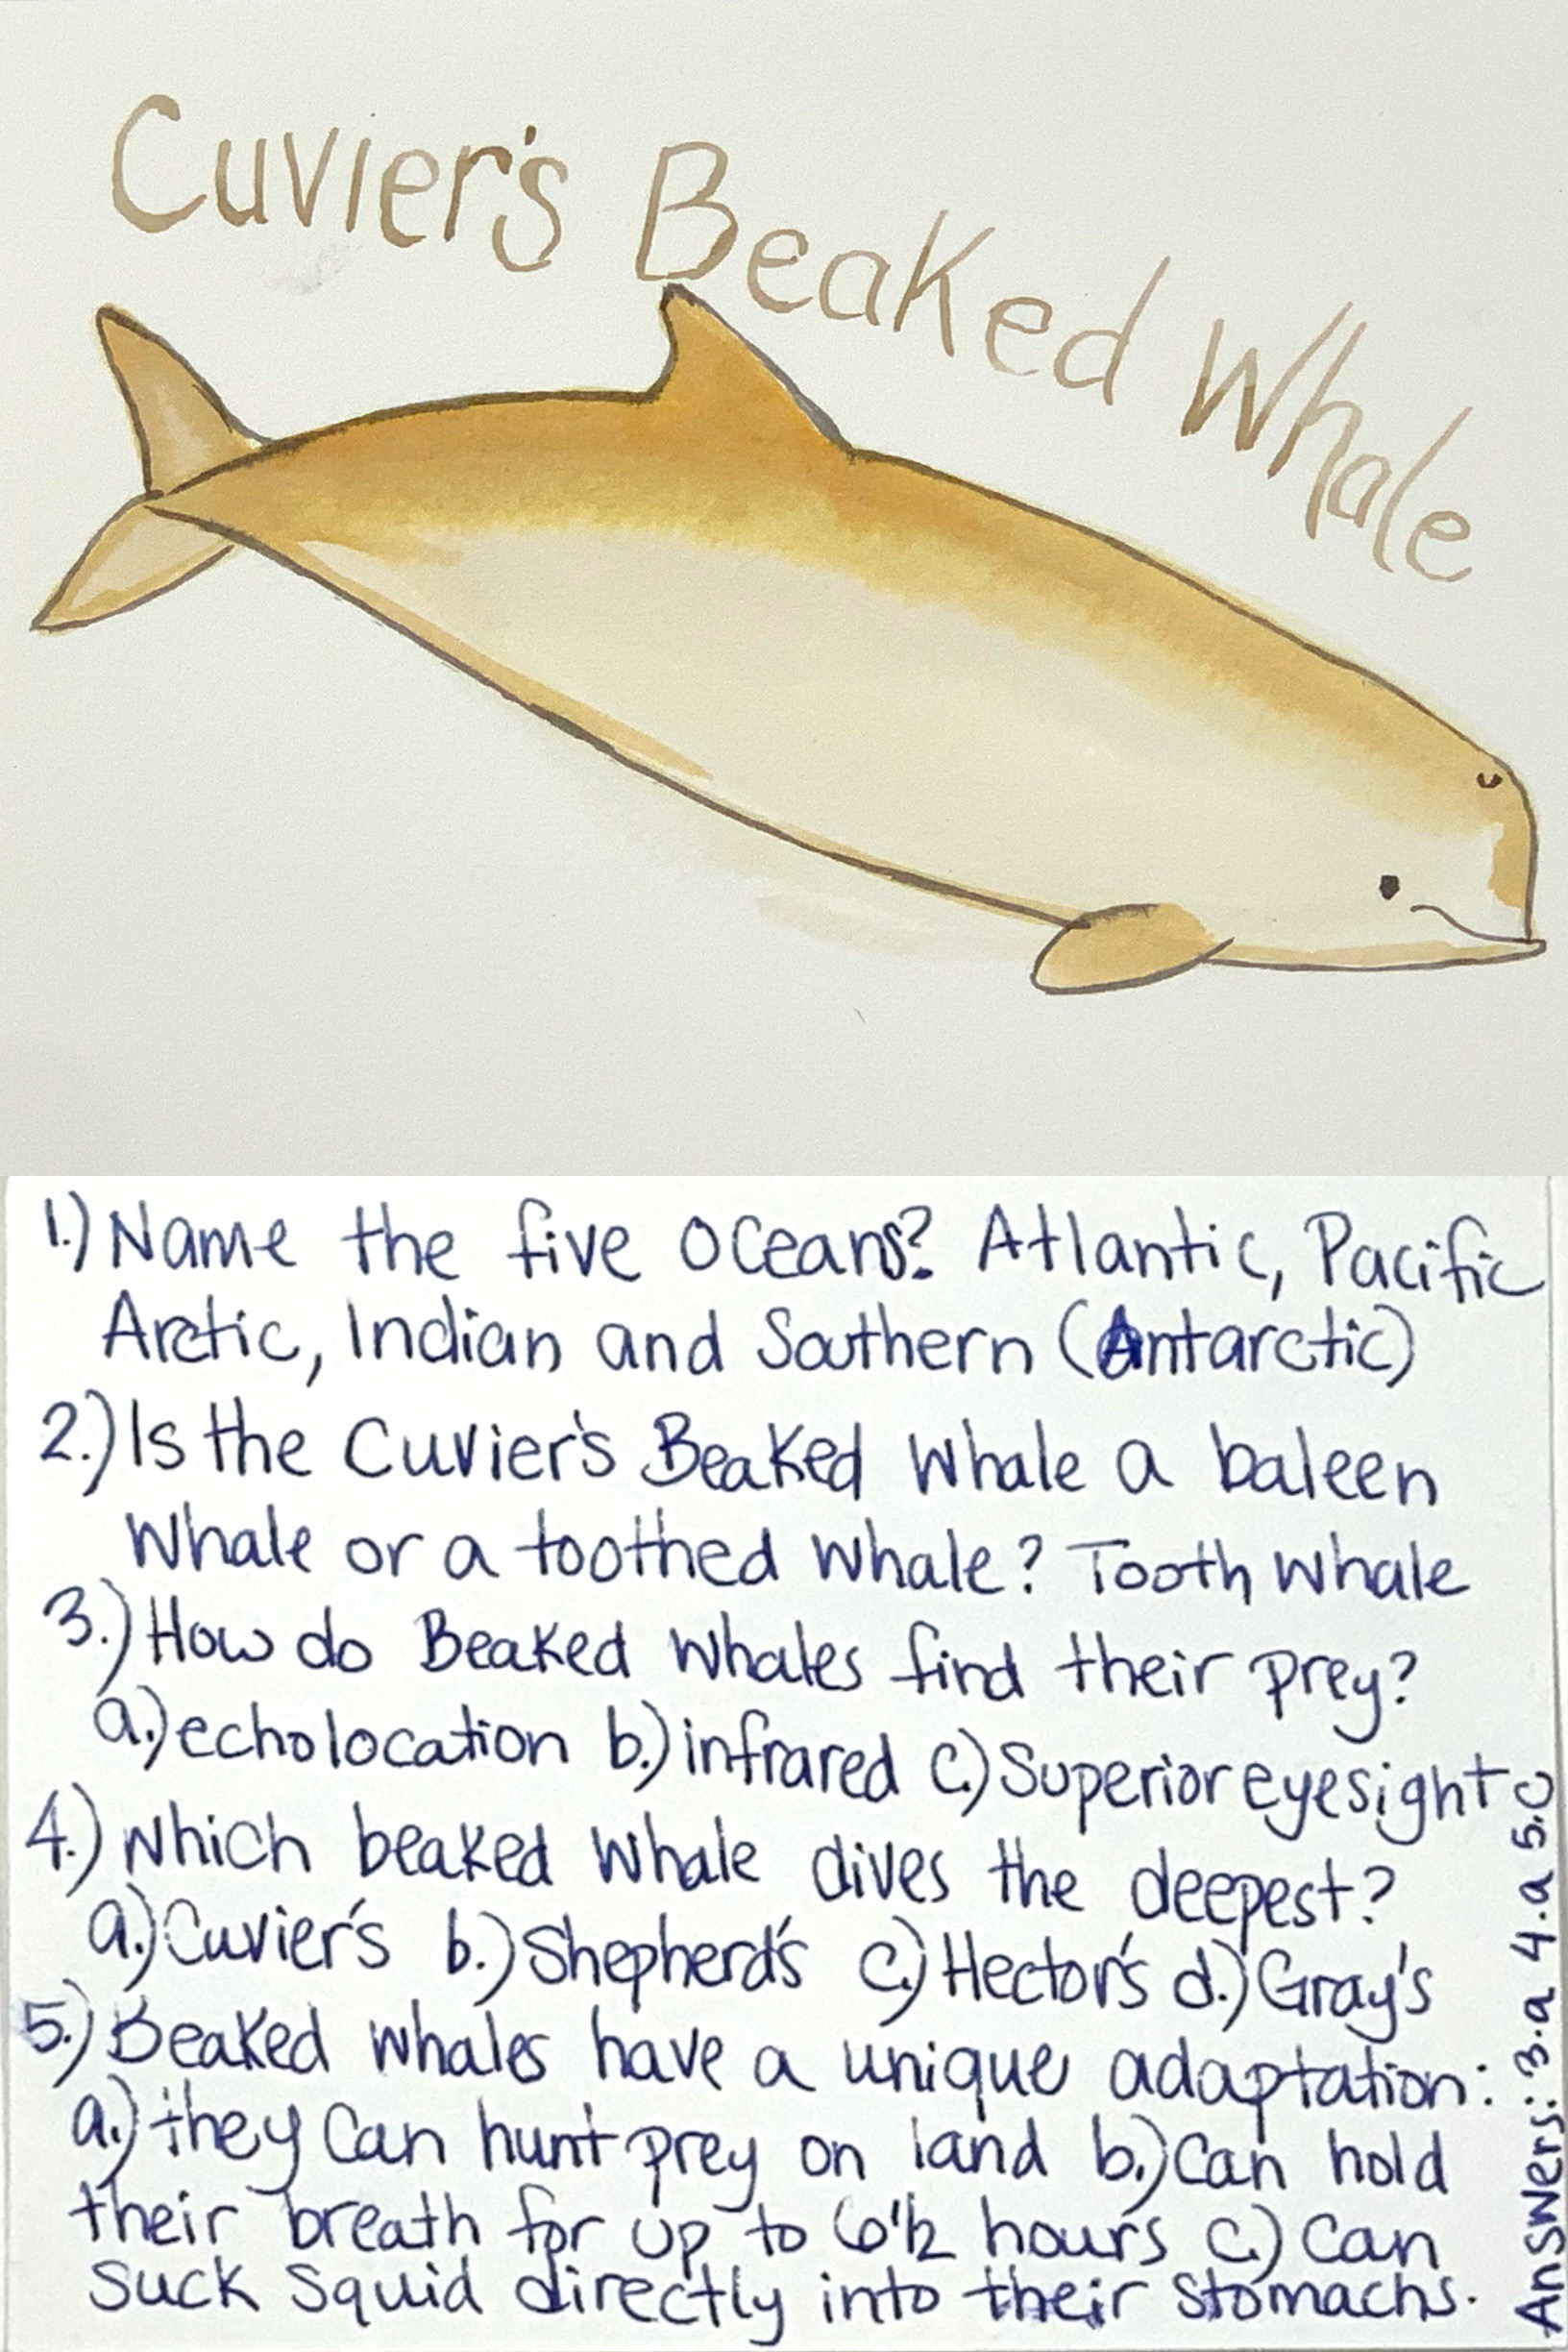 Cuvier's Beaked Whale
1.) Name the five Oceans? Atlantic, Pacific
Arctic, Indian and Southern (Antarctic)
2.) Is the Cuvier's Beaked Whale a baleen
Whale or a toothed whale? Tooth whale
3.) How do Beaked whales find their prey?
a.) echolocation b.) infrared c.) Superior eyesight
4.) Which beaked whale dives the deepest?
a.) Cuvier's b.) Shepherd's c.) Hector's d.) Gray's
5.) Beaked whales have a unique adaptation:
a.) they Can hunt prey on land b.) Can hold
their breath for up to 6 1/2 hours c.) Can
Suck Squid directly into their stomachs.
Answers: 3.a 4.a 5.c